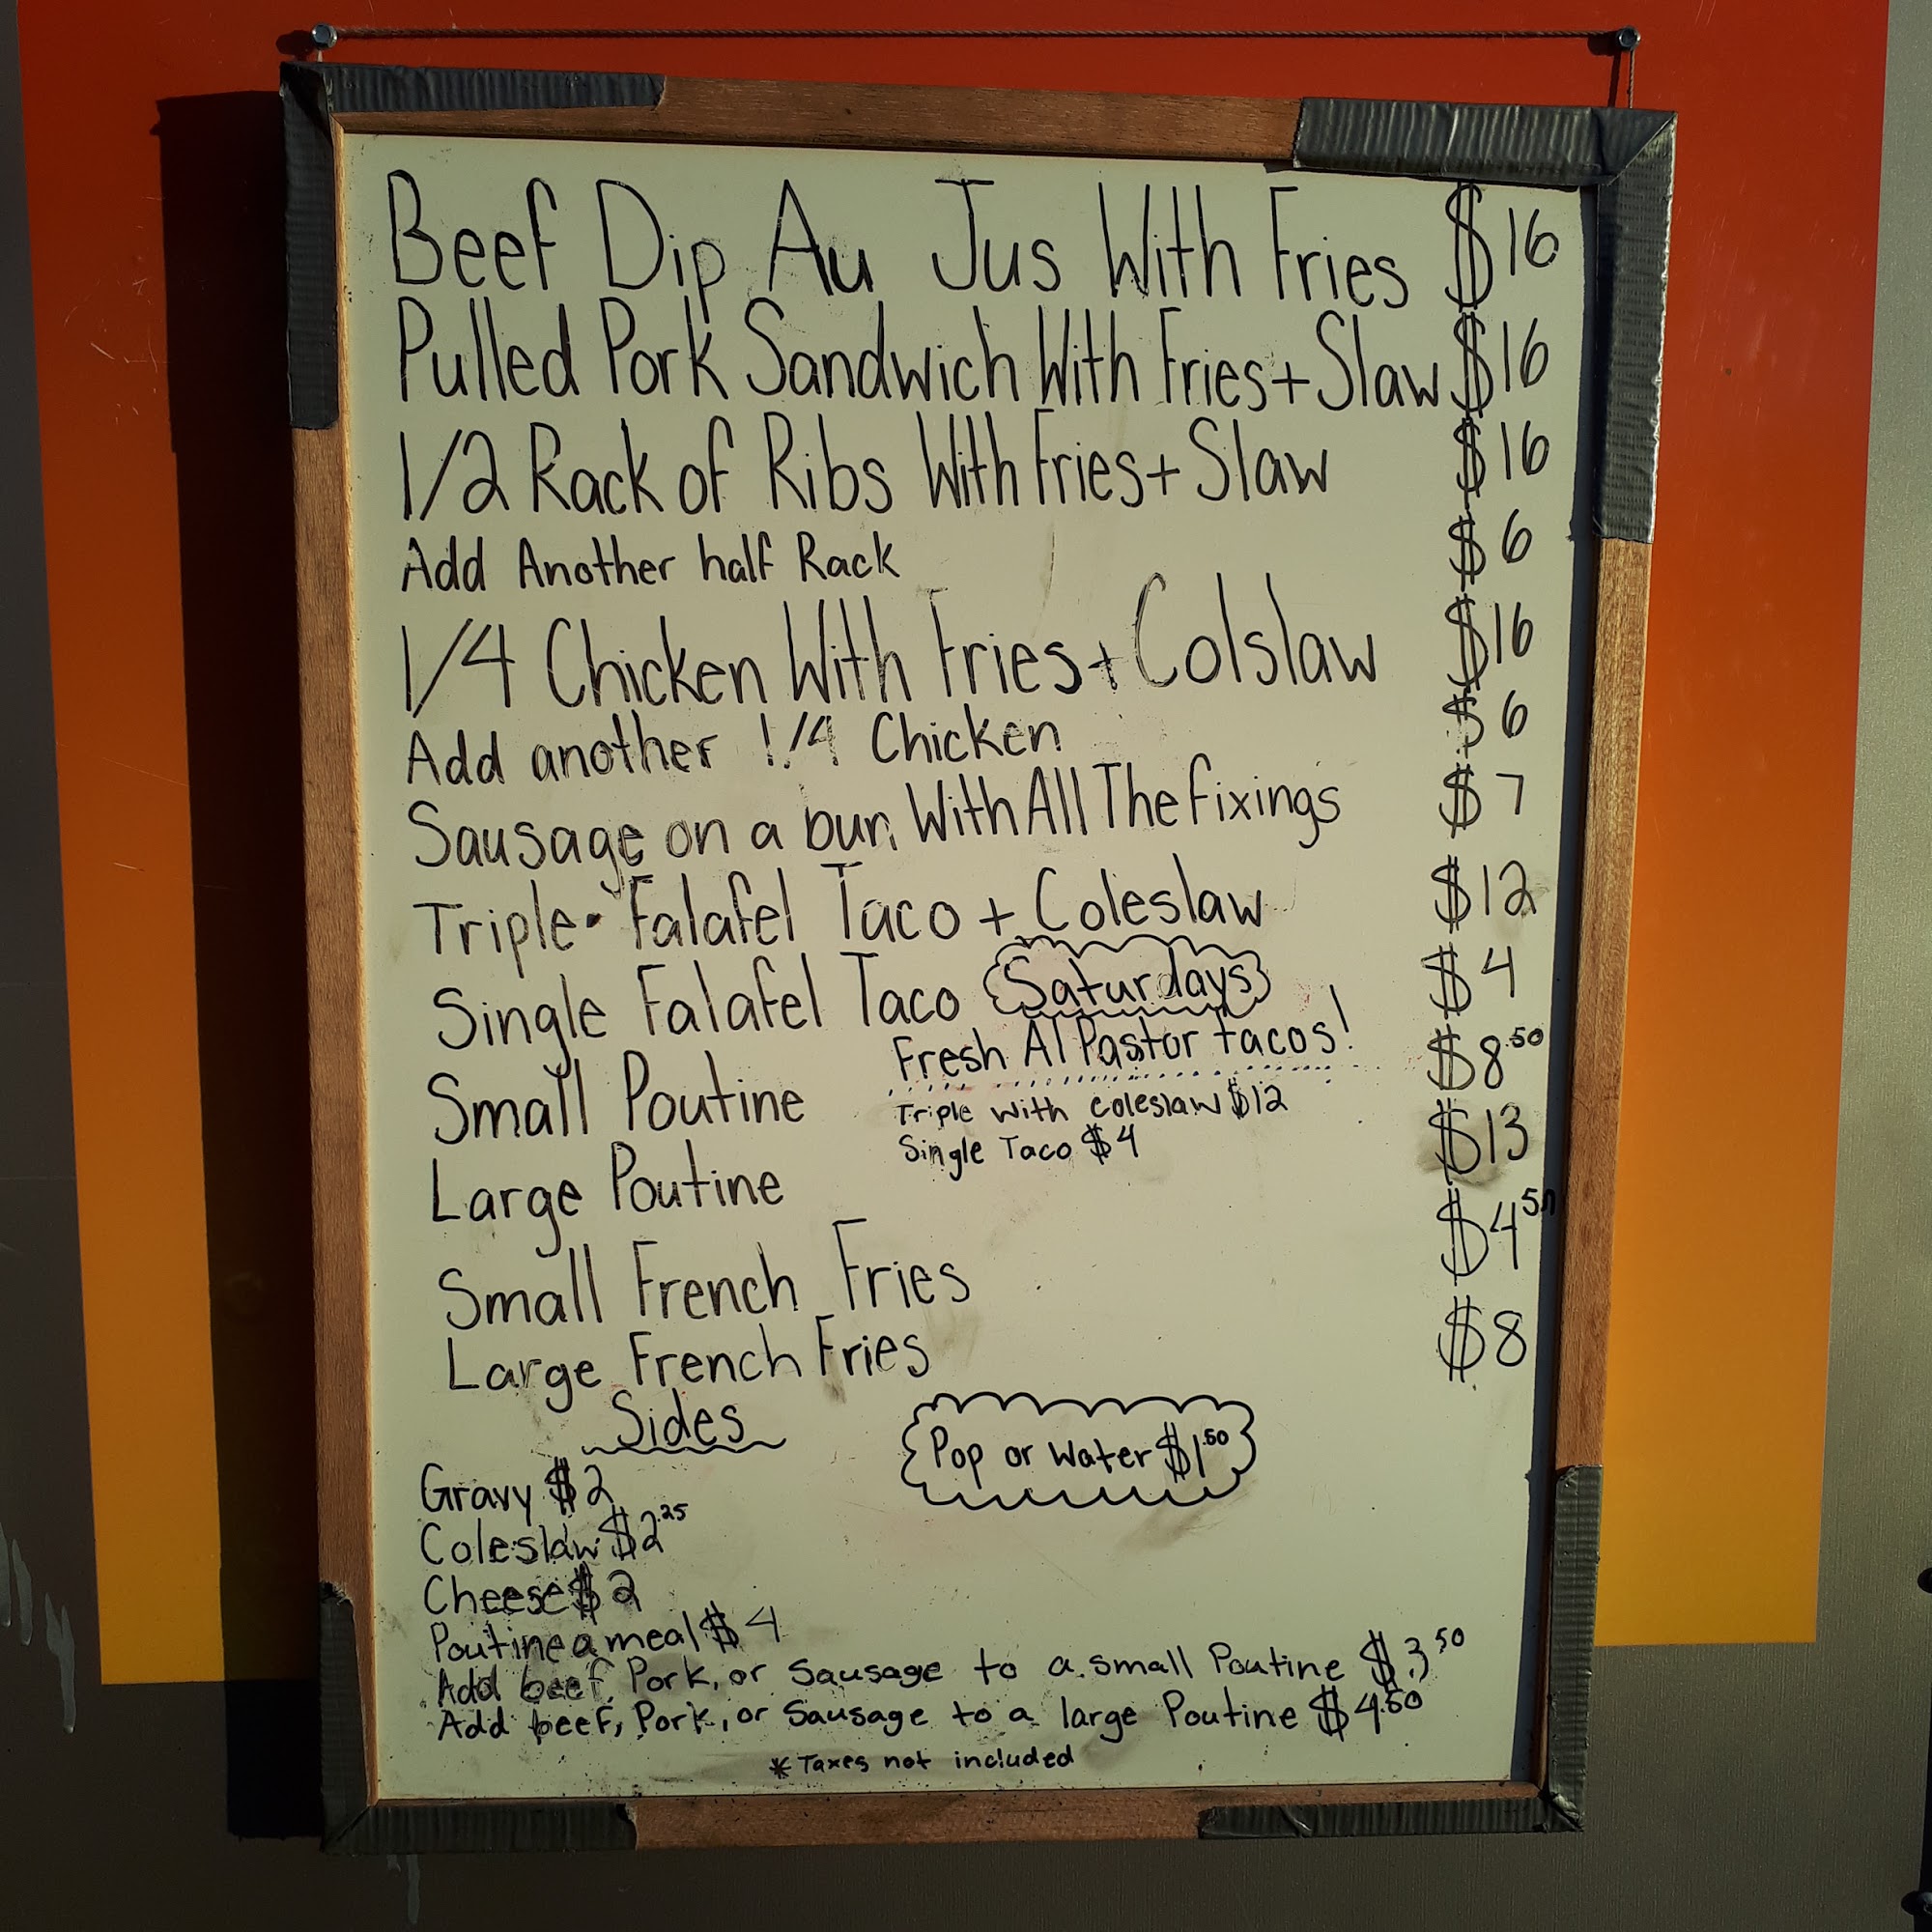 Beef Dip Au Jus With Fries $16
Pulled Pork Sandwich With Fries + Slaw $16
1/2 Rack of Ribs With Fries + Slaw $16
Add Another half Rack $6
1/4 Chicken With Fries + Colslaw $16
Add another 1/4 Chicken $6
Sausage on a bun With All The Fixings $7
Triple Falafel Taco + Coleslaw $12
Single Falafel Taco $4
Saturdays
Fresh Al Pastor tacos!
Triple with coleslaw $12
Single Taco $4
Small Poutine $8.50
Large Poutine $13
Small French Fries $4.50
Large French Fries $8
Sides
Gravy $2
Coleslaw $2.25
Cheese $2
Poutine a meal $4
Pop or Water $1.50
Add beef, Pork, or Sausage to a small Poutine $3.50
Add beef, Pork, or Sausage to a large Poutine $4.50
* Taxes not included